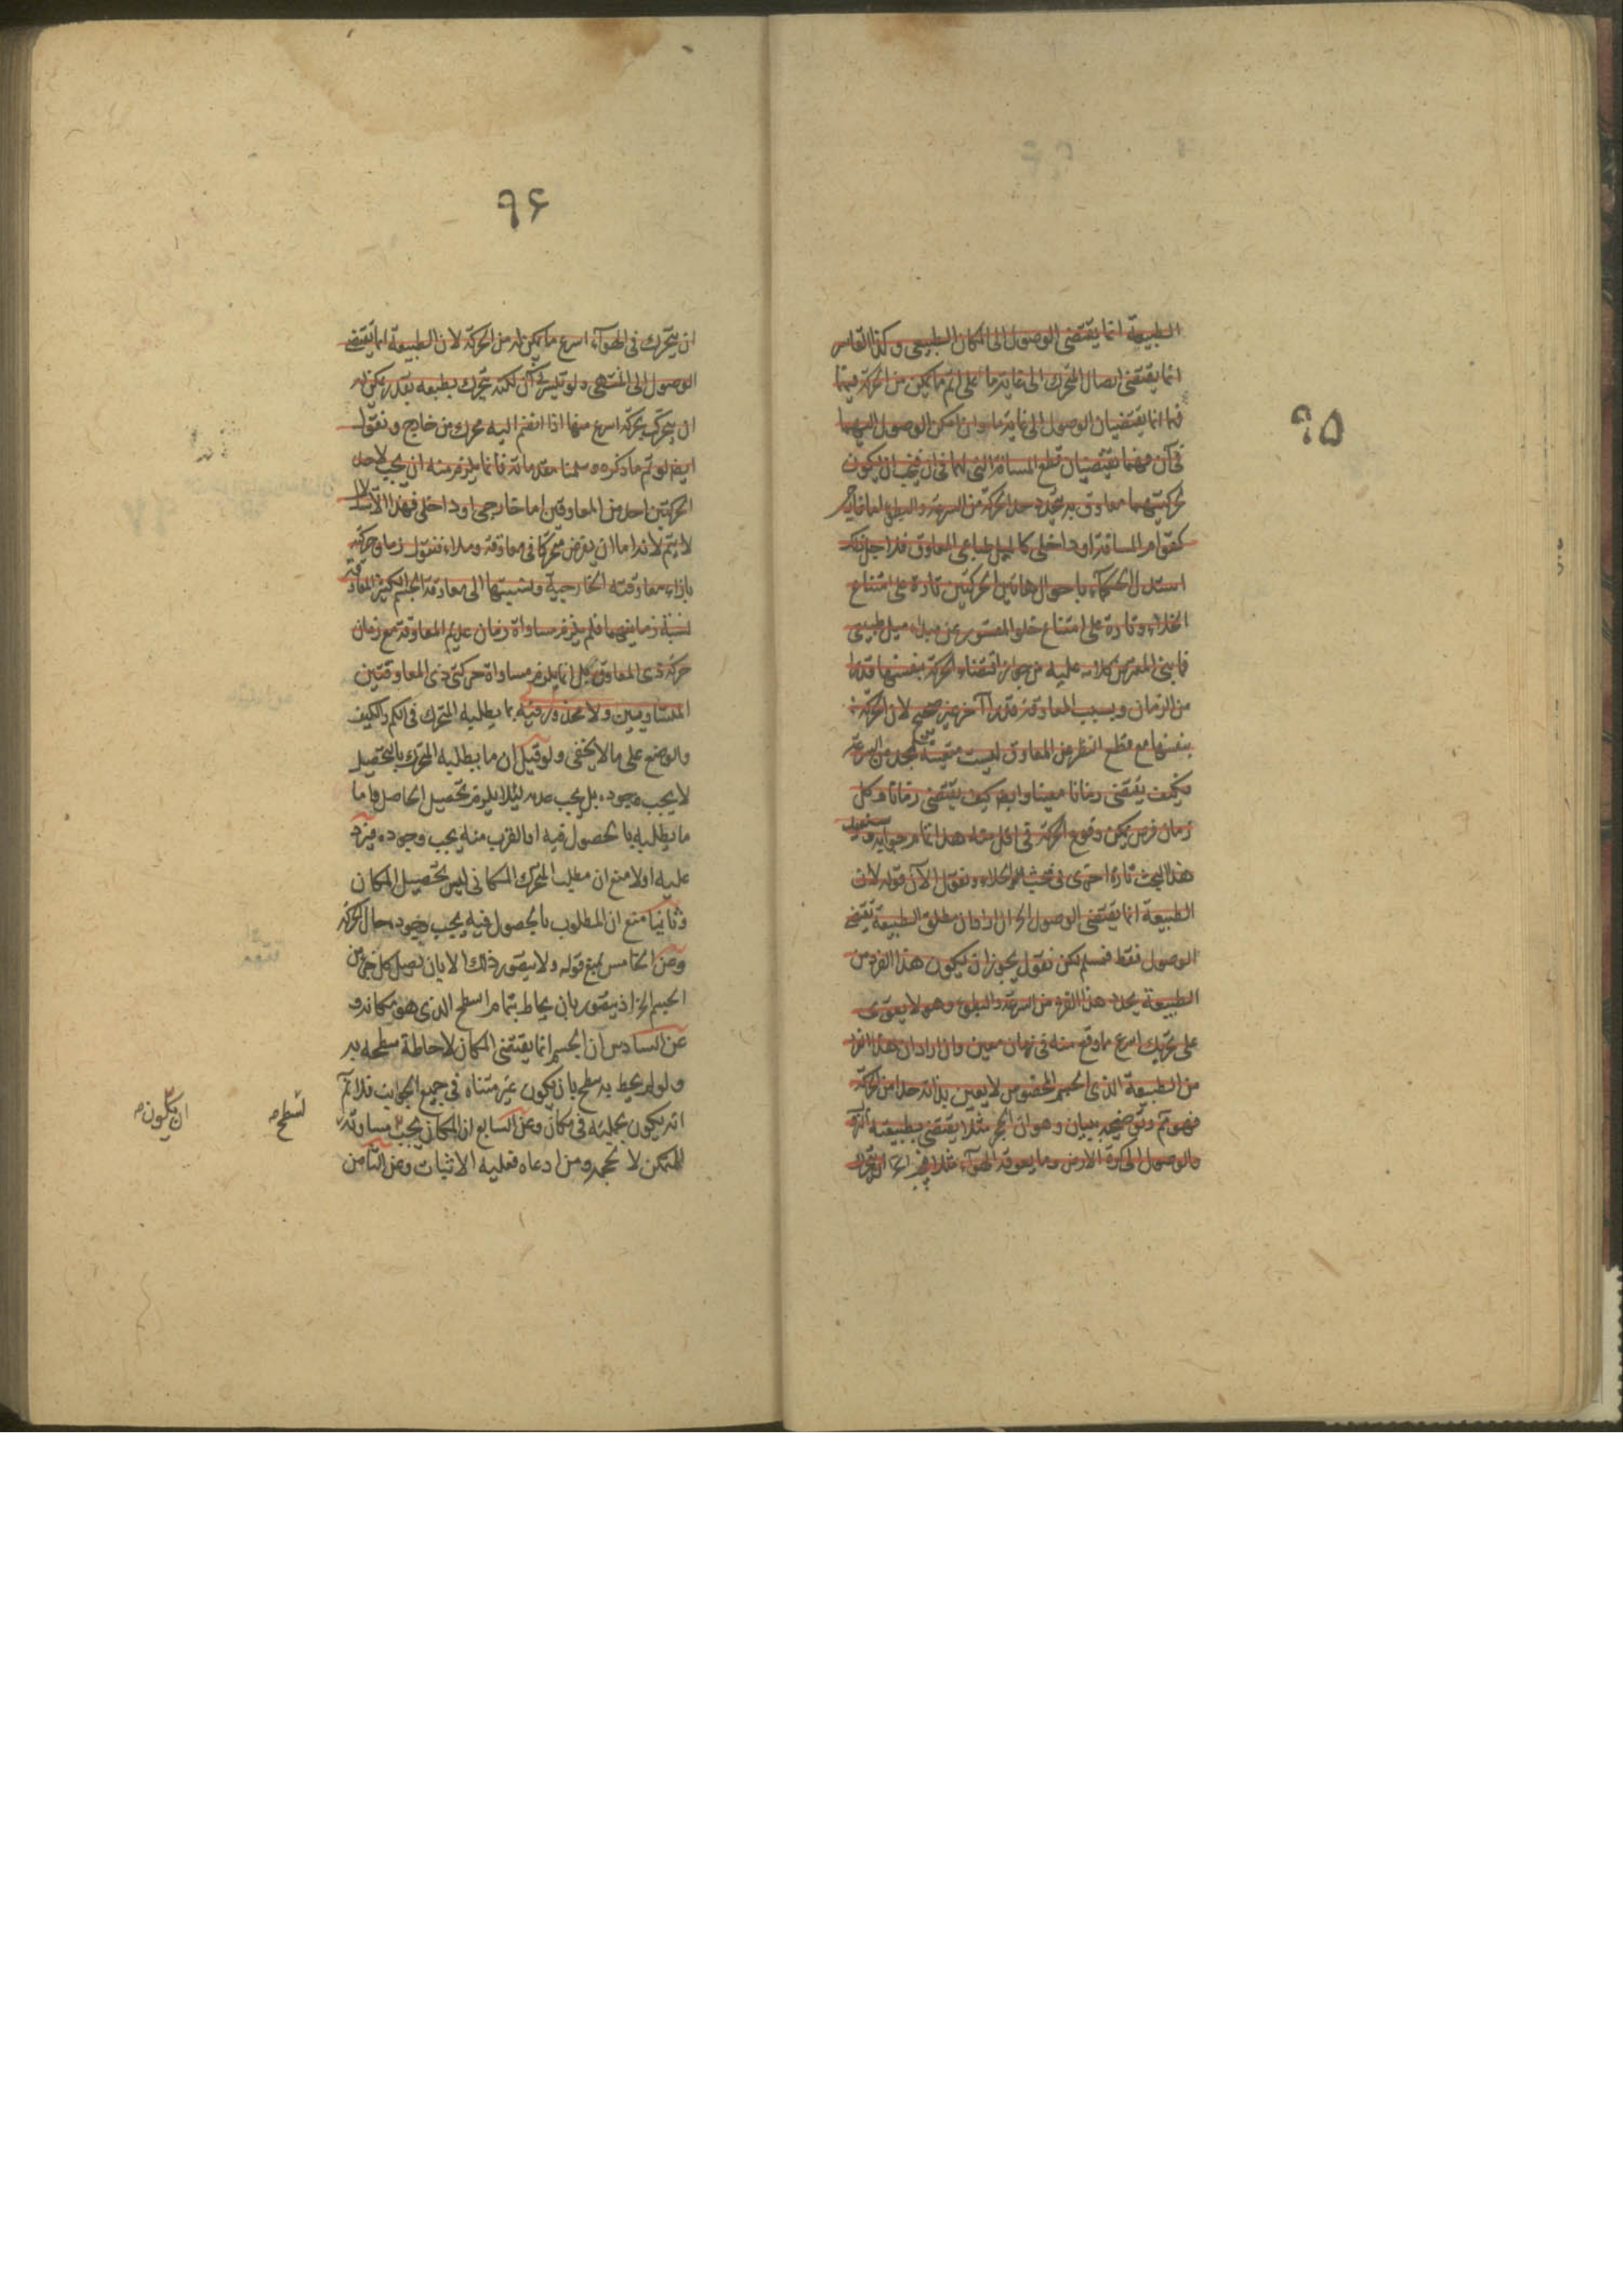 ٩٥
الطبيعة انما يقتضى الوصول الى المكان الطبيعى وكذا القاسر
انما يقتضى ايصال المتحرك الى غاية ما على اتم ما يمكن من الحركة فيها
فهما انما يقتضيان الوصول الى غاية ما وان امكن الوصول اليهما
فى آن فهما يقتضيان قطع المسافة التى لهما فى ان فيجب ان يكون
لحركتيهما معاوق به يتحدد حد الحركة من السرعة والبطؤ اما خارجى
كقوام المسافة او داخلى كالميل الطباعى المعاوق فلاجل ذلك
استدل الحكماء باحوال هاتين الحركتين تارة على امتناع
الخلاء وتارة على امتناع خلو المقسور عن مبدء ميل طبيعى
فما بنى المعترض كلامه عليه من جواز اقتضاء الحركة بنفسها قدرا
من الزمان وبسبب المعاوقة قدرا آخر غير صحيح لان الحركة
بنفسها مع قطع النظر عن المعاوق ليست متعينة بحد من السرعة
فكيف يقتضى زمانا معينا وايضا كيف يقتضى زمانا وكل
زمان فرض يمكن وقوع الحركة فى اقل منه هذا تمام جوابه وستعيد
هذا البحث تارة اخرى فى بحث الخلاء ونقول الآن قوله لان
الطبيعة انما يقتضى الوصول الخ ان اراد ان مطلق الطبيعة تقتضى
الوصول فقط فمسلم لكن نقول يجوز ان يكون هذا الفرد من
الطبيعة يحدد هذا الفرد من السرعة والبطؤ وهو لا يقوى
على تحريك اسرع مما وقع منه فى زمان معين وان اراد ان هذا الفرد
من الطبيعة الذى الجسم المخصوص لا يعين بذاته حدا من الحركة
فهو مم وتوضيحه ببيان وهو ان الحجر مثلا يقتضى بطبيعته
والوصول الى كرة الارض وما يعوقه الهواء مثلا
٩۶
ان يتحرك فى الهواء اسرع ما يمكن له من الحركة لان الطبيعة انما يقتضى
الوصول الى المنتهى ولو تيسر فى آن لكنه يتحرك بطبعه بقدر يمكن له
ان يتحرك بحركة اسرع منها اذا انضم اليه محرك من خارج ونقول
ايضا لو تم ما ذكره وسلمنا مقدماته فانما يلزم منه ان يجب لاحد
الحركتين احد من المعاوقين اما خارجى او داخلى فهذا الاستدلال
لا يتم لانه اما ان يفرض متحركا فى معاوقة وملاء فنقول زمان حركته
بازاء معاوقته الخارجية ونسبتها الى معاوقة الجسم الكثير المعاوقة
نسبة زمانيهما فلم يلزم مساواة زمان عديم المعاوقة مع زمان
حركة ذى المعاوق بل انما يلزم مساواة حركتى ذى المعاوقتين
المتساويين ولا محذور فيه بما يطلبه المتحرك فى الكم والكيف
والوضع على ما لا يخفى ولو قيل ان ما يطلبه المتحرك بالتحصيل
لا يجب وجوده بل يجب عدمه لئلا يلزم تحصيل الحاصل واما
ما يطلبه بالحصول فيه او القرب منه يجب وجوده فيرد
عليه اولا منع ان مطلب المتحرك المكانى ليس تحصيل المكان
وثانيا منع ان المطلوب بالحصول فيه يجب وجوده حال الحركة
وعن الخامس بمنع قوله ولا يتصور ذلك الا بان يصل كل جزء من
الجسم الخ اذ يتصور بان يحاط بتمام السطح الذى هو مكانه و
عن السادس ان الجسم انما يقتضى المكان لاحاطة سطحه به
ولو لم يحط به سطح بان يكون غير متناه فى جميع الجوانب فلانم
انه يكون بجملته فى مكان وعن السابع ان المكان يجب مساوته
للمتمكن لا لحجمه ومن ادعاه فعليه الاثبات وعن الثامن
لسطح
ان يكون